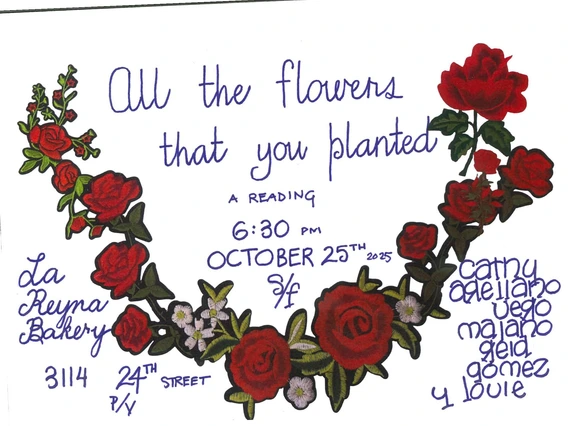 All the flowers
that you planted
A READING
6:30 PM
OCTOBER 25TH 2025
S/f
La
Reyna
Bakery
3114 24TH STREET
P/V
cathy
arellano
vego
majano
geia
gómez
y louie